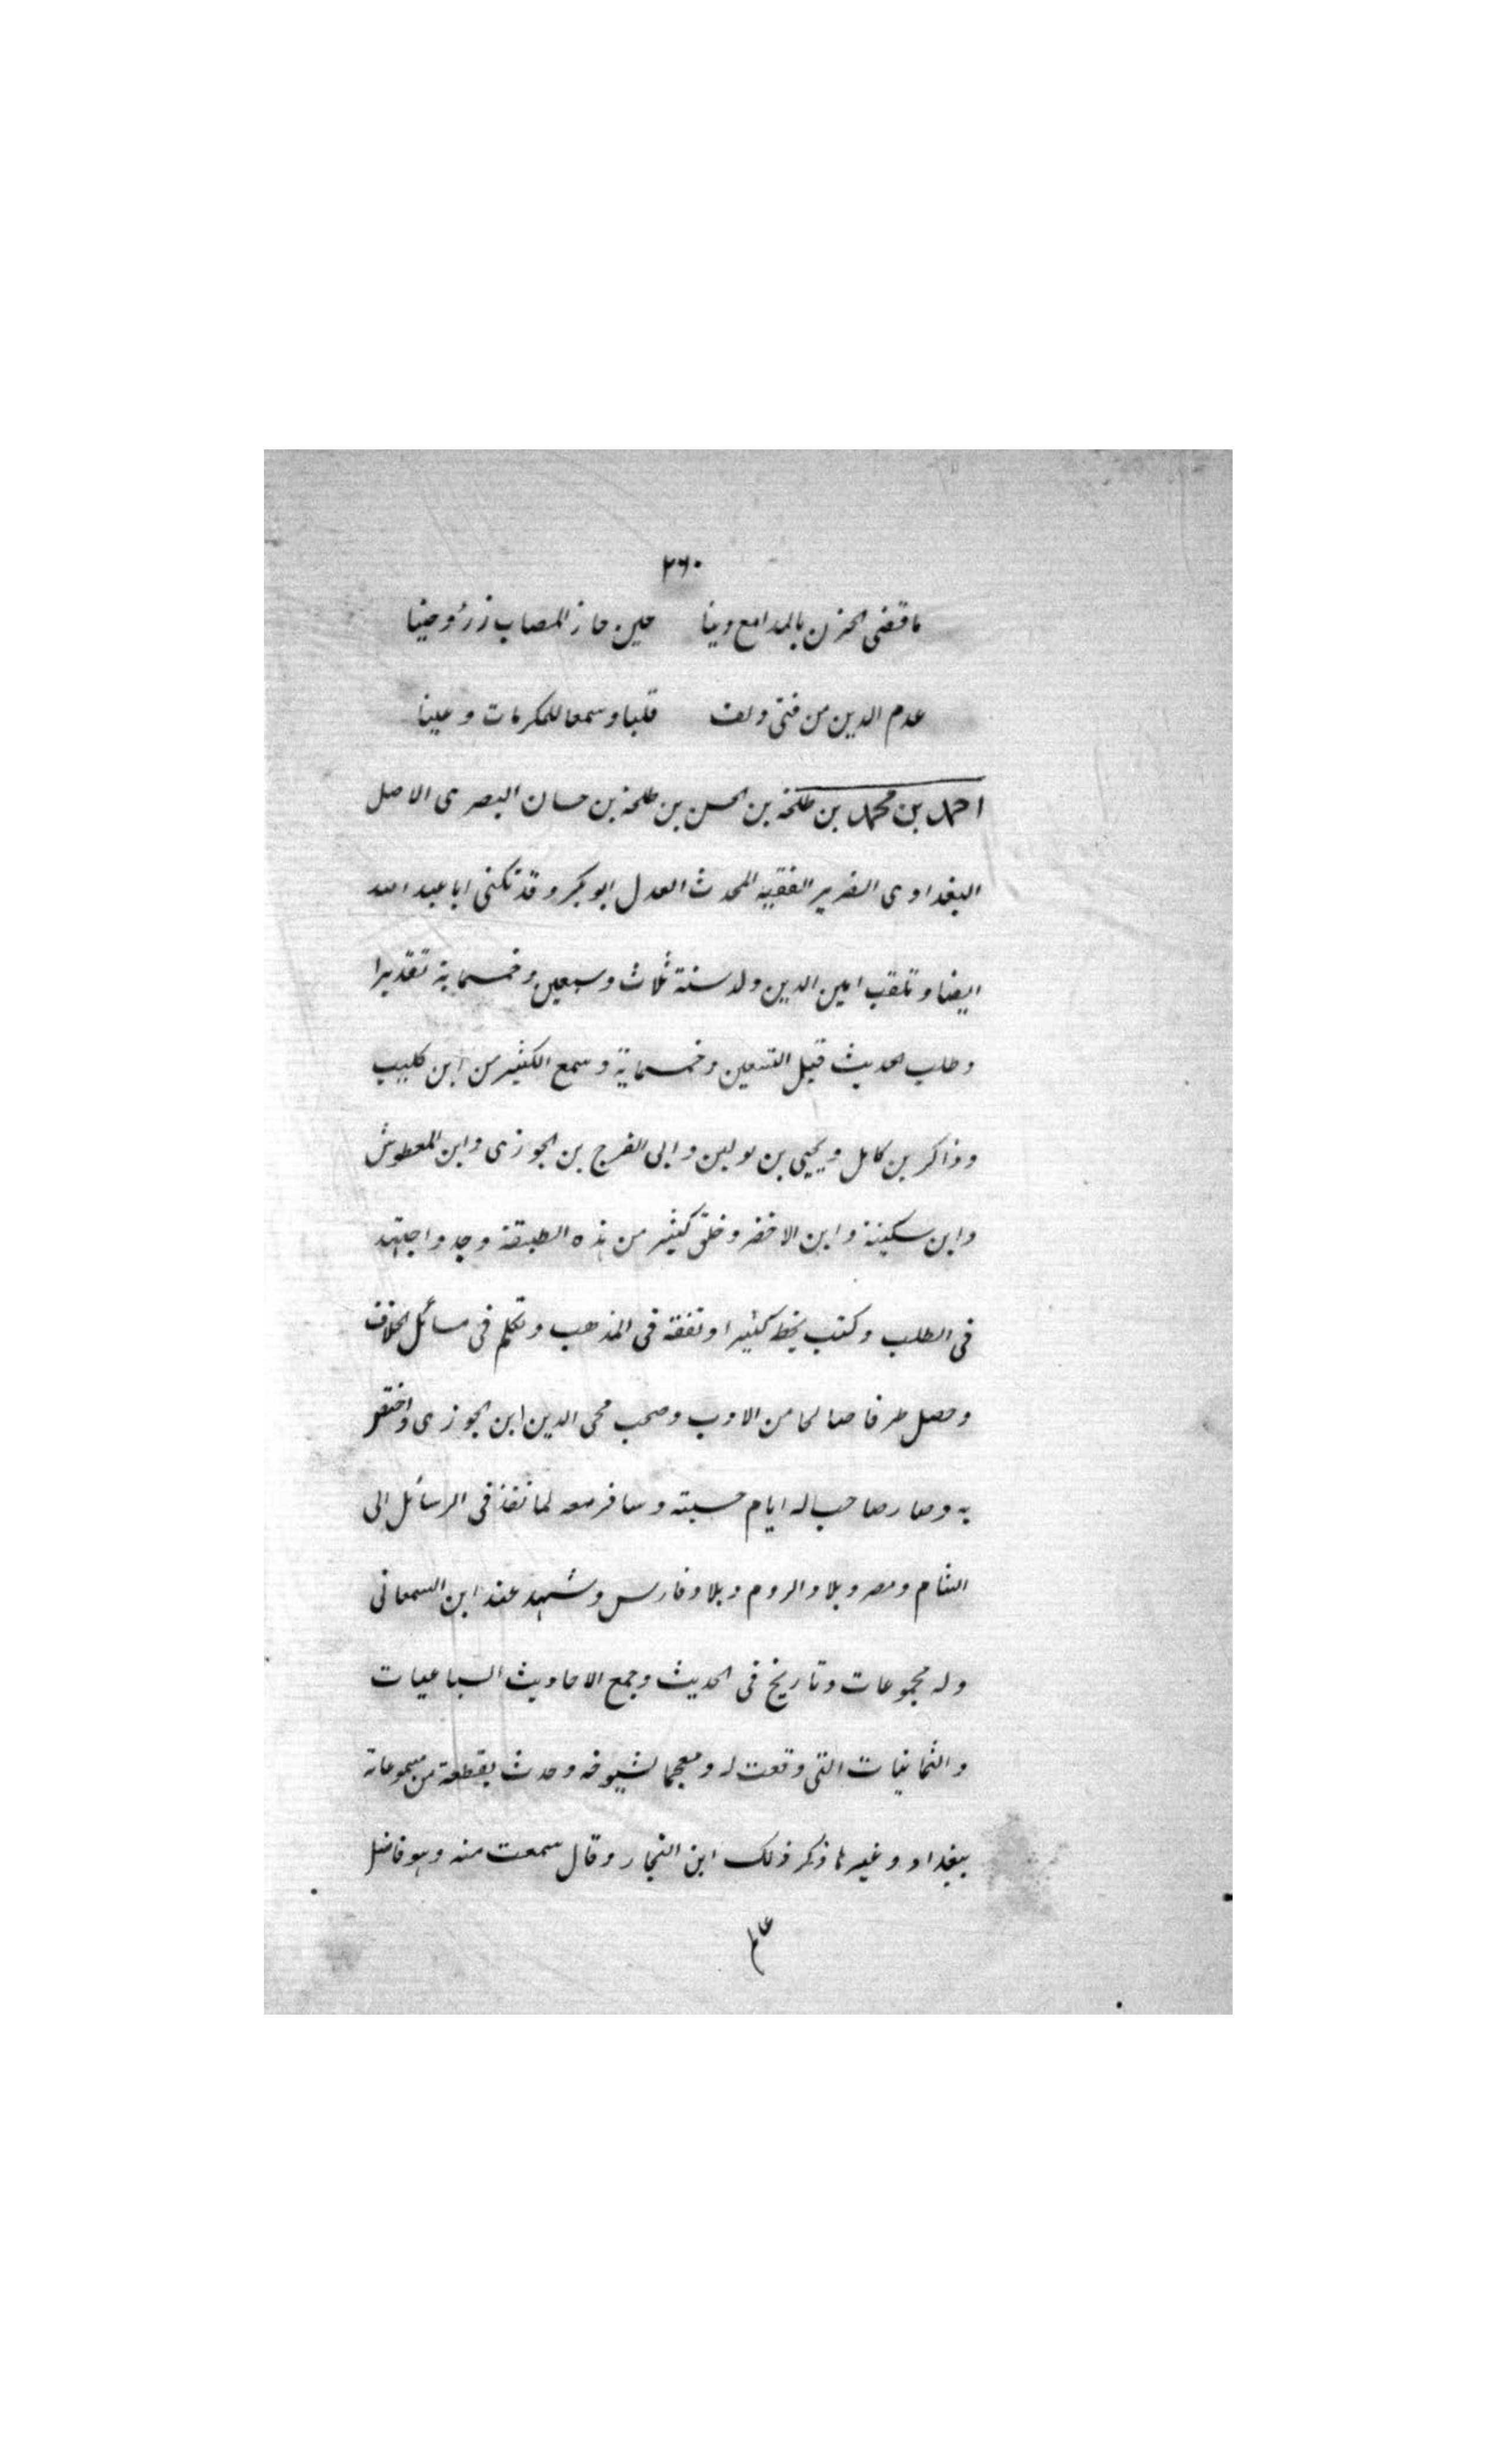 ٢٦٠
ما قضى الحزن بالمدامع دينا حين حاز المصاب زرؤ وحينا
عدم الدين من فتى ولف قلبا وسمعا للمكرمات وعينا
احمد بن محمد بن طلحة بن الحسن بن طلحة بن حسان البصرى الاصل
البغدادى الضرير الفقيه المحدث العدل ابو بكر وقد تكنى ابا عبد الله
ايضا وتلقب امين الدين ولد سنة ثلاث وسبعين وخمسماية تقديرا
وطلب الحديث قبل التسعين وخمسماية وسمع الكثير من ابن كليب
وذاكر بن كامل ويحيى بن بو لين وابى الفرج بن الجوزى وابن المعطوش
وابن سكينة وابن الاخضر وخلق كثير من هذه الطبقة وجد واجتهد
فى الطلب وكتب بخطه كثيرا وتفقه فى المذهب وتكلم فى مسائل الخلاف
وحصل طرفا صالحا من الادب وصحب محى الدين ابن الجوزى واختص
به وصار صاحب له ايام حسبته وسافر معه لما نفذ فى الرسائل الى
الشام ومصر وبلاد الروم وبلاد فارس وشهد عند ابن السمعانى
وله مجموعات وتاريخ فى الحديث وجمع الاحاديث السباعيات
والثمانيات التى وقعت له ومعجما لشيوخه وحدث بقطعة من مجموعاته
ببغداد وغيرها ذكر ذلك ابن النجار وقال سمعت منه وهو فاضل